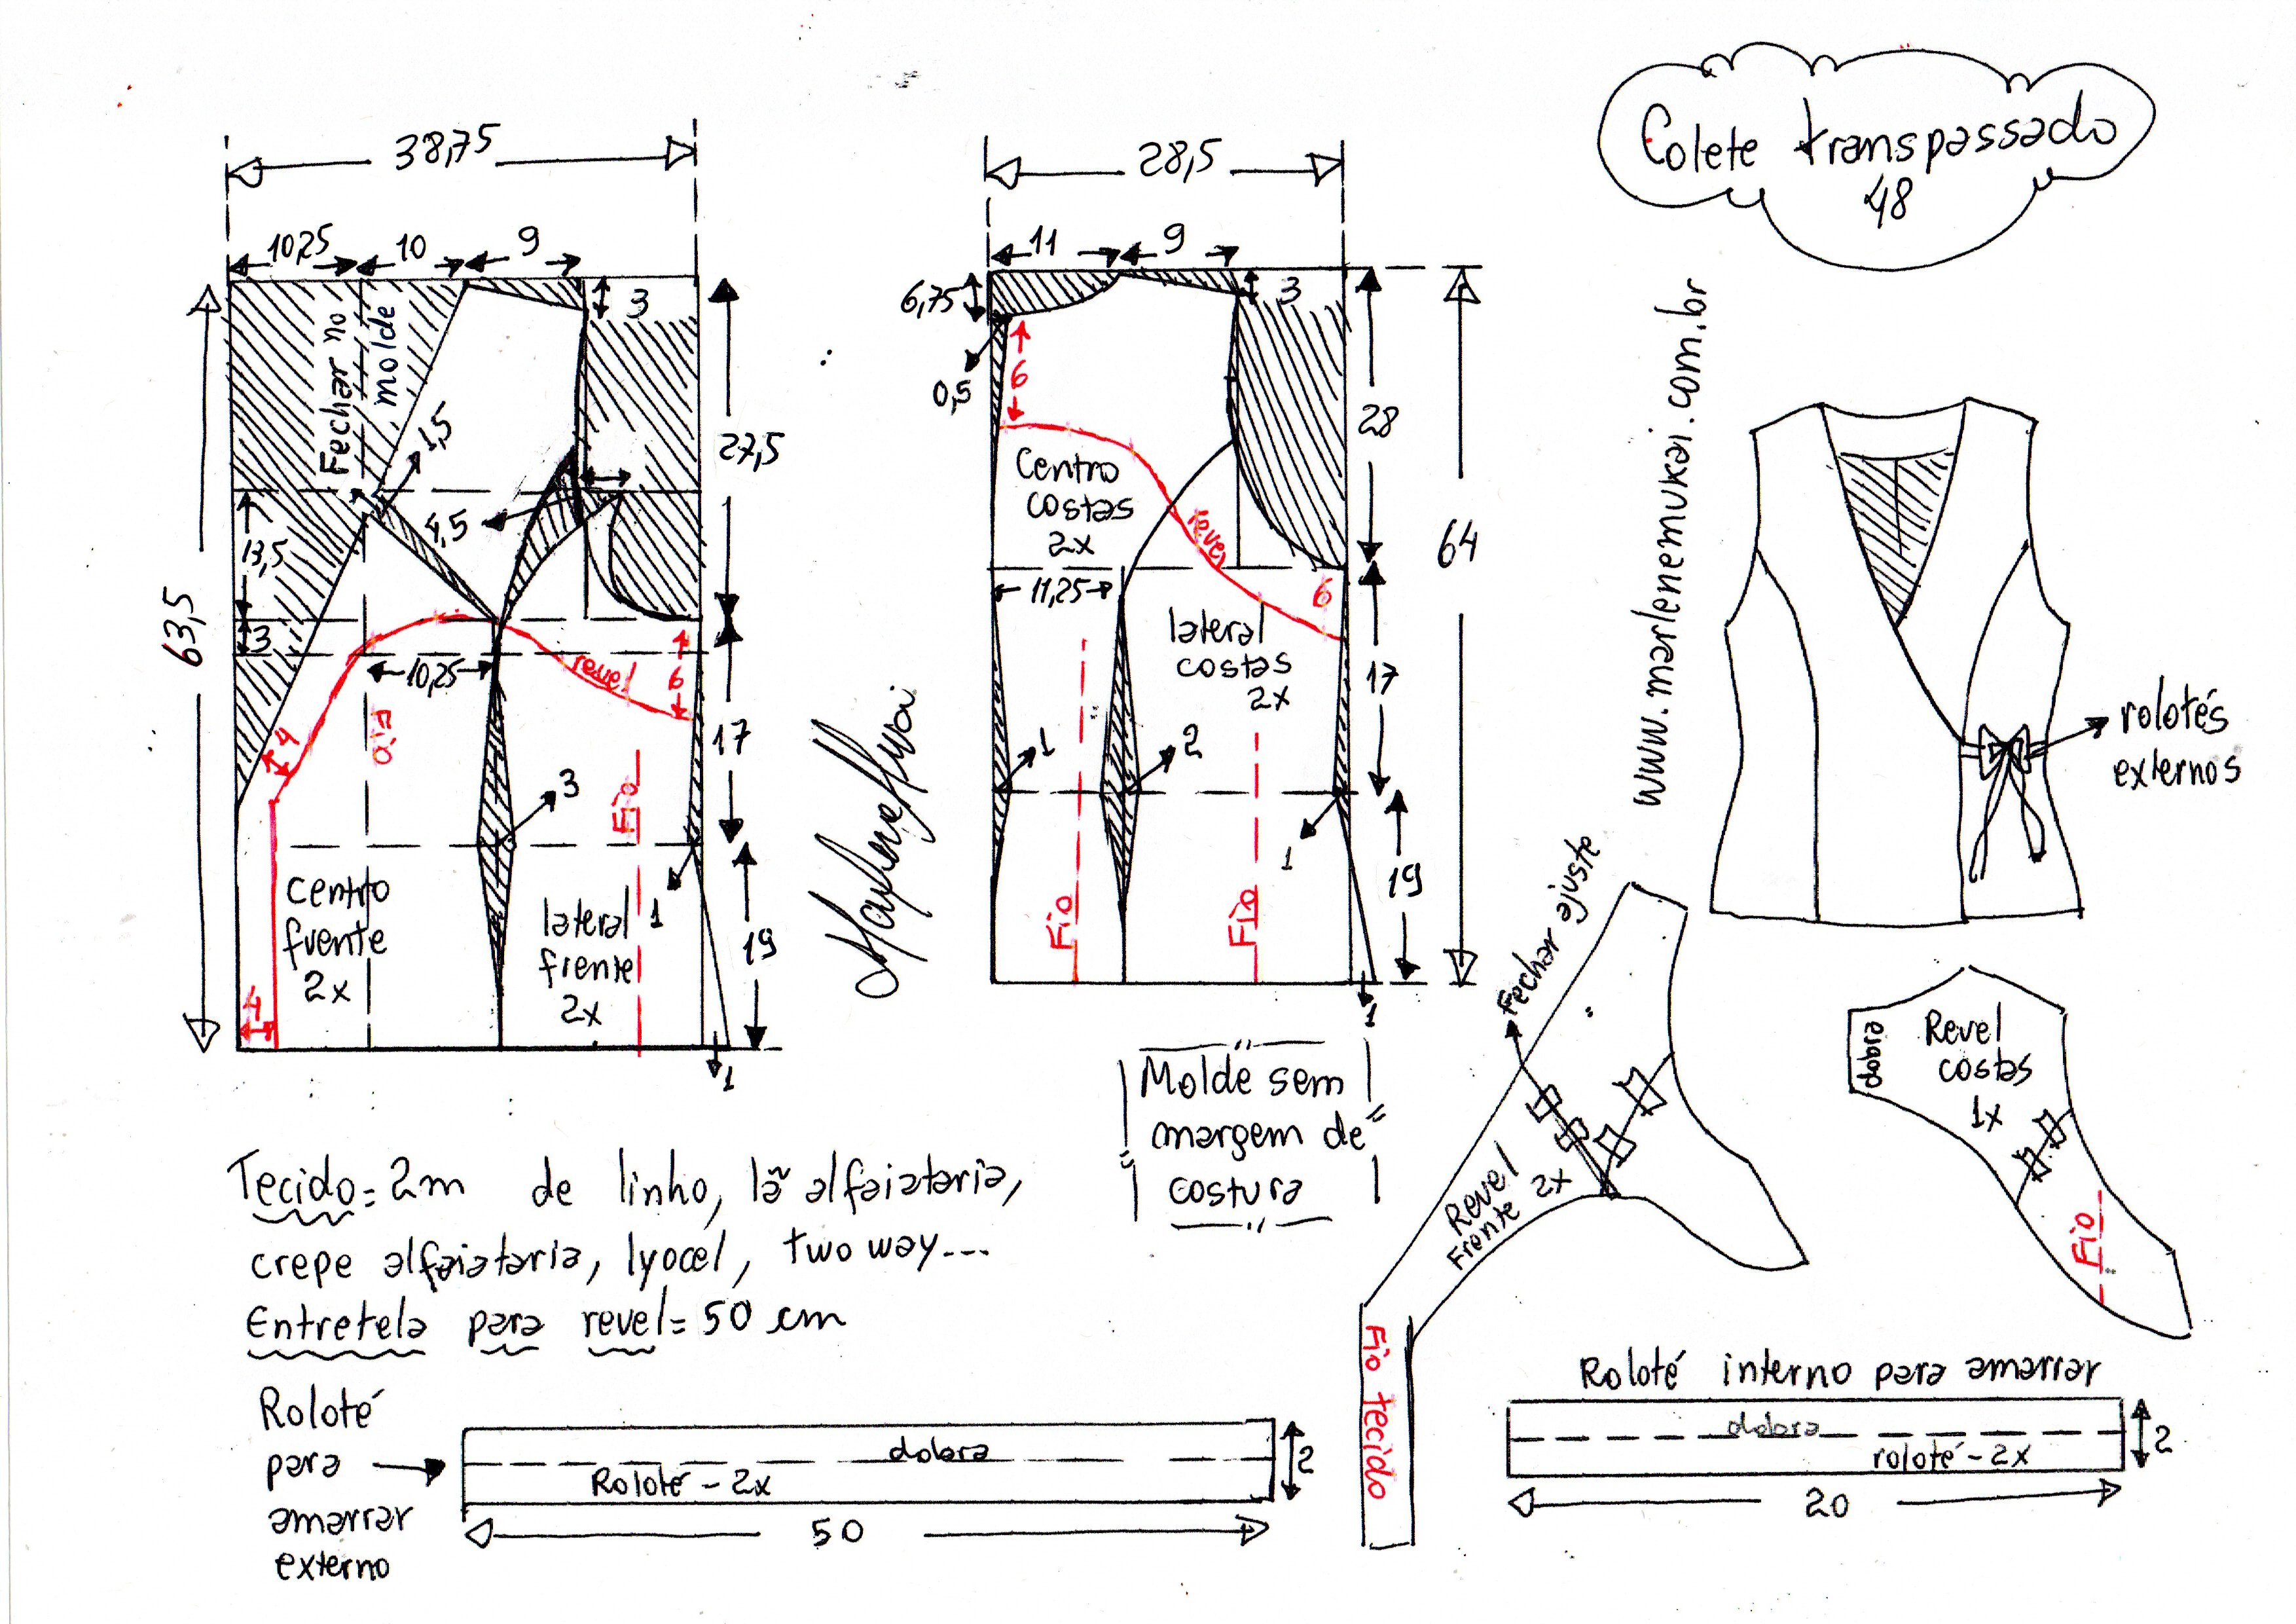 Colete transpassado
48
38,75
10,25
10
9
3
Fechar no
molde
1,5
27,5
4,5
13,5
3
63,5
10,25
revel
6
4
Fio
17
3
Fio
1
centro
frente
2x
lateral
frente
2x
19
4
1
28,5
11
9
6,75
3
0,5
6
28
Centro
costas
2x
revel
64
11,25
6
lateral
costas
2x
17
1
2
1
19
Fio
Fio
1
www.marlenemukai.com.br
rolotés
externos
Molde sem
margem de
costura
Fechar ajuste
Revel
Frente
2x
Fio tecido
dobra
Revel
costas
1x
Fio
Tecido = 2m de linho, lã alfaiataria,
crepe alfaiataria, lyocel, two way...
Entretela para revel = 50 cm
Roloté
para
amarrar
externo
dobra
Roloté - 2x
2
50
Roloté interno para amarrar
dobra
roloté - 2x
2
20